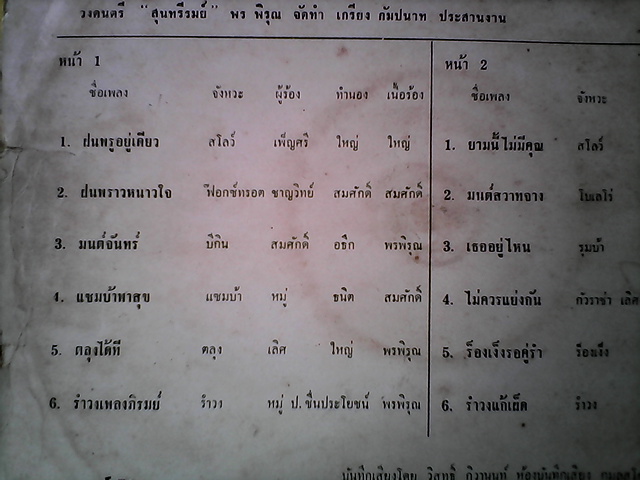 วงดนตรี "สุนทรีรมย์" พร พิรุณ จัดทำ เกรียง กัมปนาท ประสานงาน
หน้า 1
ชื่อเพลง จังหวะ ผู้ร้อง ทำนอง เนื้อร้อง
1. ฝนพรูอยู่เดียว สโลว์ เพ็ญศรี ใหญ่ ใหญ่
2. ฝนพราวหนาวใจ ฟ๊อกซ์ทรอต ชาญวิทย์ สมศักดิ์ สมศักดิ์
3. มนต์จันทร์ บีกิน สมศักดิ์ อธึก พรพิรุณ
4. แซมบ้าพาสุข แซมบ้า หมู่ ธนิต สมศักดิ์
5. ตลุงได้ที ตลุง เลิศ ใหญ่ พรพิรุณ
6. รำวงเพลงภิรมย์ รำวง หมู่ ป. ชื่นประโยชน์ พรพิรุณ
หน้า 2
ชื่อเพลง จังหวะ
1. ยามนี้ไม่มีคุณ สโลว์
2. มนต์สวาทจาง โบเลโร่
3. เธออยู่ไหน รุมบ้า
4. ไม่ควรแย่งกัน กัวราช่า เลิศ
5. ร็องเง็งรอคู่รำ ร็องเง็ง
6. รำวงแก้เผ็ด รำวง
บันทึกเสียงโดย วิสุทธิ์ ห้องบันทึกเสียง